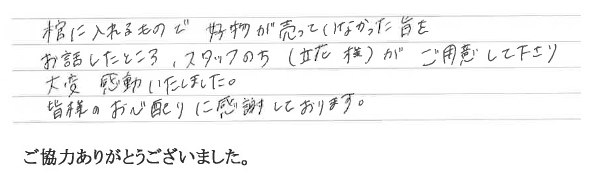 棺に入れるもので 好物が売っていなかった旨を
お話したところ、スタッフの方（立花 様）が ご用意して下さり
大変 感動いたしました。
皆様のお心配りに感謝しております。
ご協力ありがとうございました。